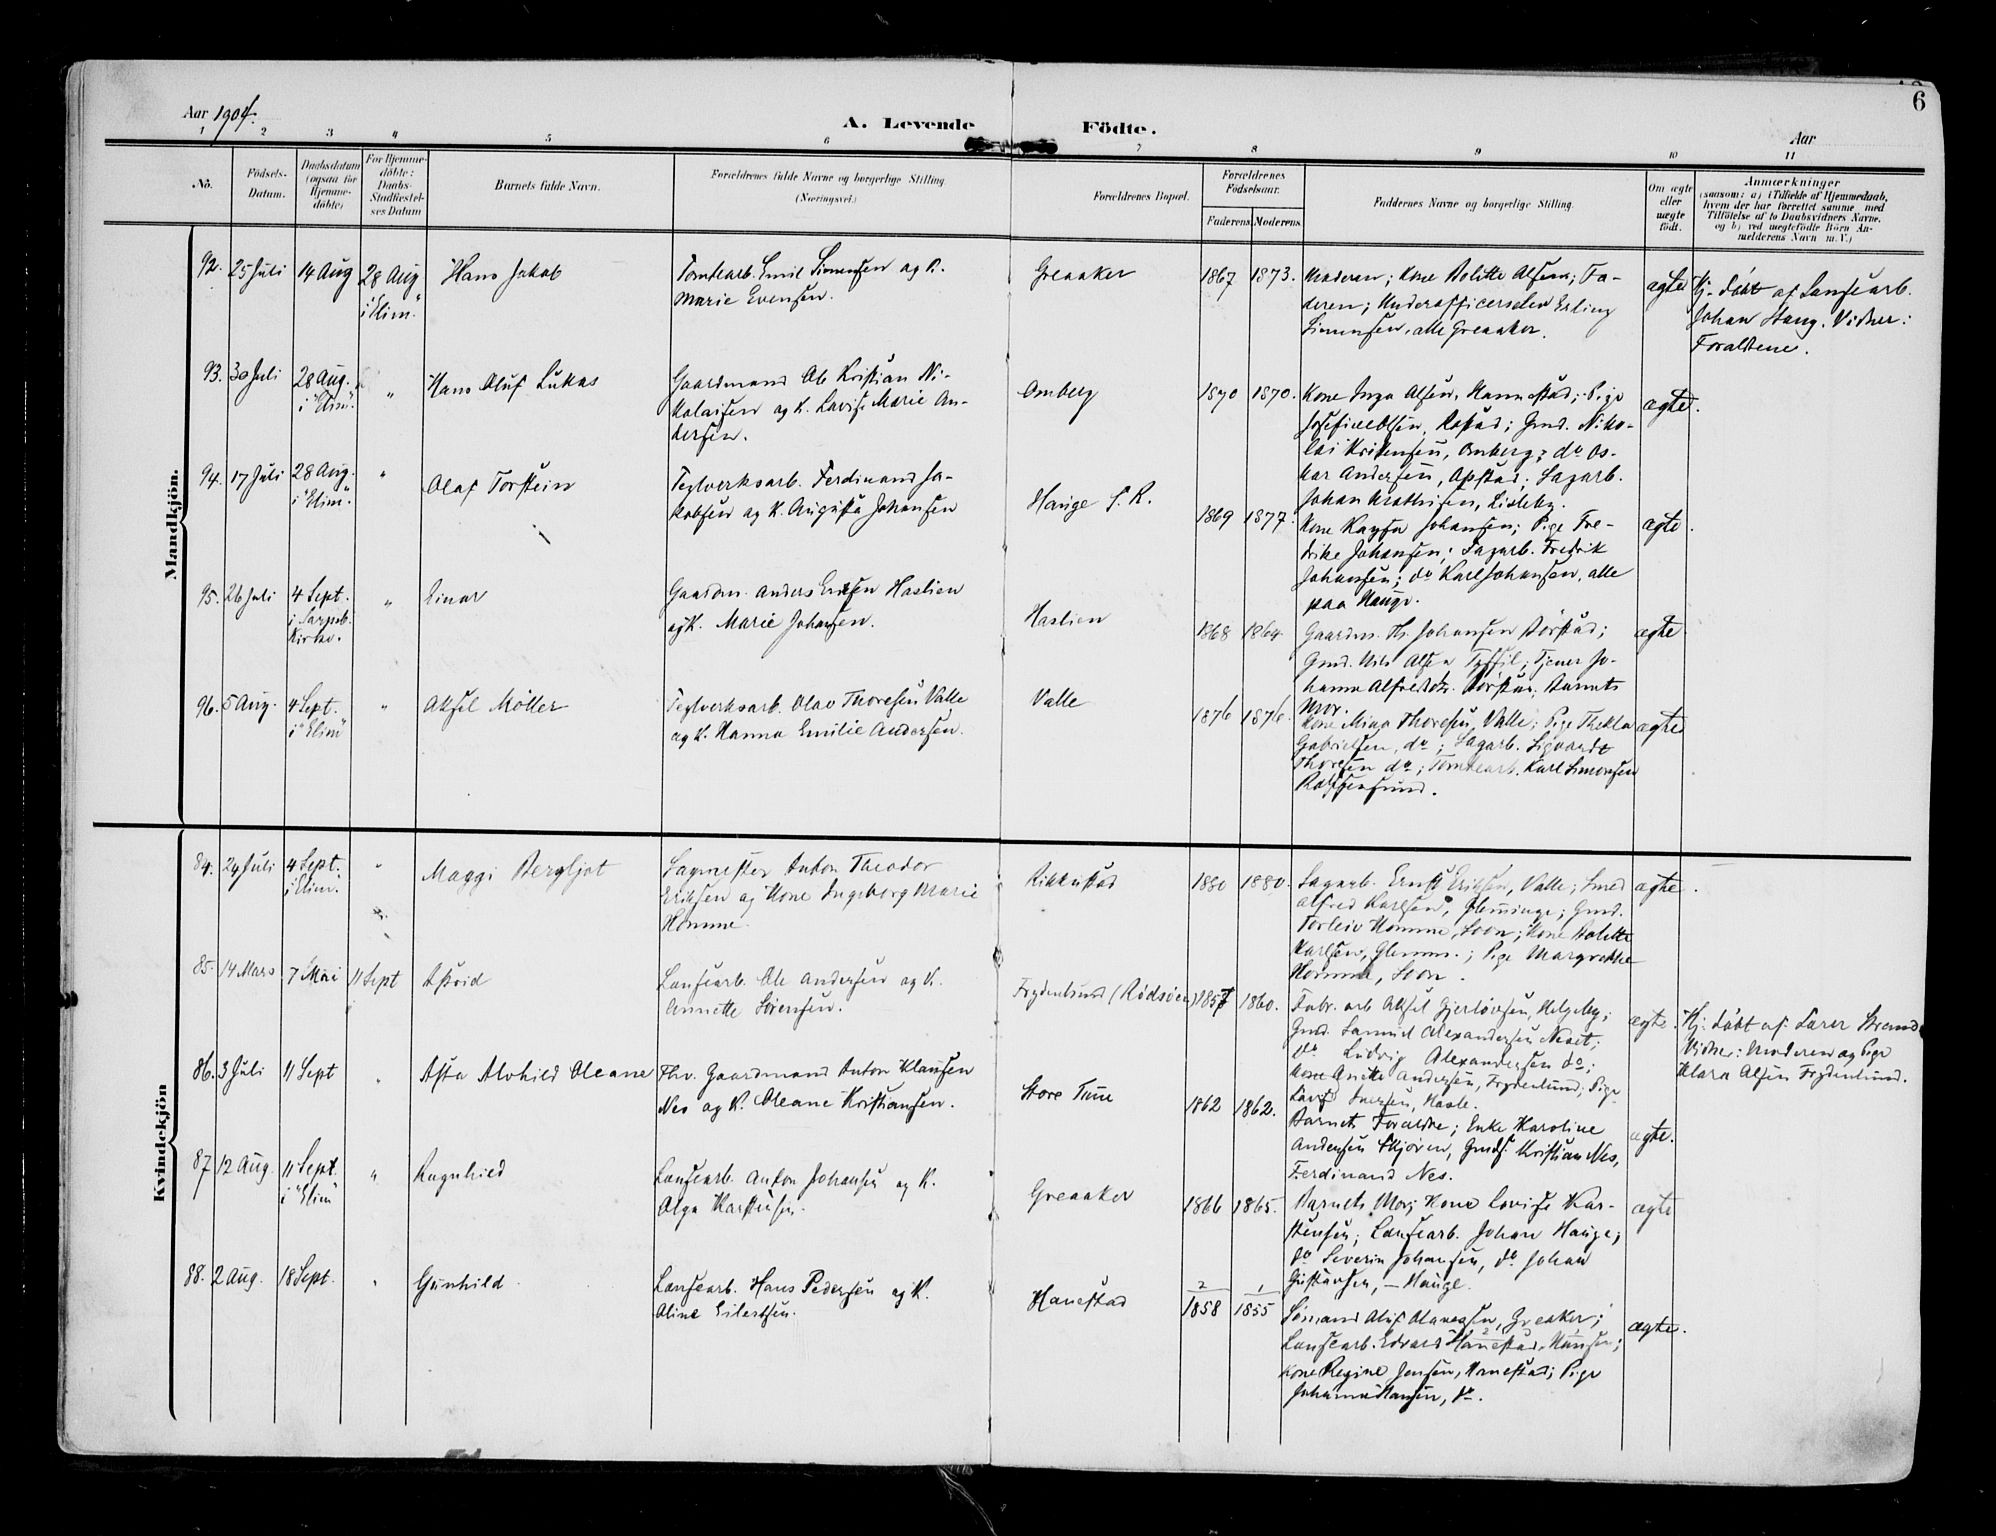 6
Aar 1904.
A. Levende Födte.
Aar
1 2 3 4 5 6 7 8 9 10 11
No.
Födsels-
Datum.
Daabsdatum
(ogsaa for
Hjemme-
döbte)
For Hjemme-
döbte:
Daabs-
Stadfæstel-
ses Datum
Barnets fulde Navn.
Forældrenes fulde Navne og borgerlige Stilling.
(Næringsvei.)
Forældrenes Bopæl.
Forældrenes
Födselsaar.
Faderens. Moderens.
Faddernes Navne og borgerlige Stilling.
Om ægte
eller
uægte
födt.
Anmærkninger
(saasom: a) i Tilfælde af Hjemmedaab,
hvem der har forrettet samme med
Tilföielse af to Daabsvidners Navne,
og b) ved uægtefödte Börn An-
melderens Navn m. V.)
Mandkjön.
92. 25 Juli
14 Aug
28 Aug
i "Elim."
Hans Jakob
Tomtearb. Emil Simensen og K.
Marie Evensen.
Greaaker
1867 1873.
Moderen; Kone Bolette Olsen; Fa-
deren; Underofficerselev Erling
Simensen, alle Greaaker.
ægte
Hj. döbt af Landsearb.
Johan Haug. Vidner:
Forældrene.
93. 30 Juli
28 Aug.
i "Elim."
"
Hans Oluf Lukas
Gaardmand Ole Kristian Ni-
kolaisen og K. Lovise Marie An-
dersen.
Omberg
1870 1870.
Kone Inga Olsen, Hannestad; Pige
Josefine Olsen, Rostad; Gmd. Niko-
lai Kristensen, Omberg; do Os-
kar Andersen, Opstad; Sagarb.
Johan Mathisen, Lisleby.
ægte.
94. 17 Juli
28 Aug.
i "Elim."
"
Olaf Torstein
Teglverksarb. Ferdinand Ja-
kobsen og K. Augusta Johansen
Hauge S. R.
1869 1877.
Kone Kaysa Johansen; Pige Fre-
drike Johansen; Sagarb. Fredrik
Johansen; do Karl Johansen, alle
paa Hauge.
ægte.
95. 26 Juli
4 Sept.
i Sarpsb.
Kirke.
"
Einar
Gaardm. Anders Haslien
og K. Marie Johansen.
Haslien
1868 1864.
Gaardm. Th. Johansen Borstad;
Gmd. Nils Olsen Tjener Jo-
hanne Borstad; Barnets
Mor.
ægte.
96. 5 Aug.
4 Sept.
i "Elim"
"
Aksel Möller
Teglverksarb. Olav Thoresen Valle
og K. Hanna Emilie Andersen.
Valle
1876 1876.
Kone Mina Thoresen, Valle; Pige Thekla
Gabrielsen, do; Sagarb. Sigvardt
Thoresen do; Tomtearb. Karl Simonsen
ægte
Kvindekjön
84. 24 Juli
4 Sept.
i Elim.
"
Maggi Bergljot
Sagmester Anton Theodor
Eriksen og Kone Ingeborg Marie
Homme.
Rikkestad
1880 1880.
Sagarb. Ernst Eriksen, Valle; Smed
Alfred Karlsen, Glemminge; Gmd.
Torleiv Homme, Soon; Kone Bolette
Karlsen, Glemm.; Pige Margrethe
Homme, Soon.
ægte.
85. 14 Mars
7 Mai
11 Sept
Astrid
Landsearb. Ole Andersen og K.
Annette Sörensen.
Frydenlund (Rödsöen)
1857 1860.
Fabr. arb. Aksel Gjerlövsen, Helgeby;
Gmd. Samuel Alexandersen Neset;
do Ludvig Alexandersen do;
Kone Anette Andersen, Frydenlund; Pige
Iversen, Hasle.
ægte.
Hj. döbt af Lærer Strand
Vidner: Moderen og Pige
Klara Olsen Frydenlund.
86. 3 Juli
11 Sept
"
Asta Alvhild Oleane
Fhv. Gaardmand Anton Klausen
Nes og K. Oleane Kristiansen.
Store Tune
1862 1862.
Barnets Forældre; Enke Karoline
Andersen Skjören, Gmds. Kristian Nes,
Ferdinand Nes.
ægte.
87 12 Aug.
11 Sept.
i "Elim"
"
Ragnhild
Landsearb. Anton Johansen og K.
Olga Karstensen.
Greaaker
1866 1865.
Barnets Mor; Kone Lovise Kar-
stensen; Landsearb. Johan Hauge;
do Severin Johansen, do Johan
Gustavsen, – Hauge.
ægte
88. 2 Aug.
18 Sept.
"
Gunhild
Landsearb. Hans Pedersen og K.
Oline Eilertsen.
Hanestad
2 1
1858 1855
Sömand Oluf Olavesen, Greaker;
Landsearb. Edvard Hanestad, Hansen;
Kone Regine Jensen, Hanestad; Pige
Johanna Hansen, do.
ægte.